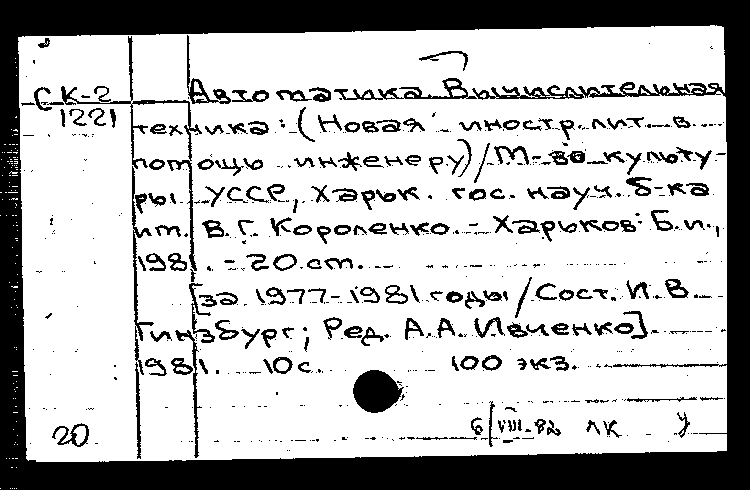 СК-2
1221
Автоматика. Вычислительная
техника: (Новая иностр. лит. в
помощь инженеру)/М-во культу-
ры УССР, Харьк. гос. науч. б-ка
им. В.Г. Короленко. - Харьков: Б.и.,
1981. - 20 см.
[за 1977-1981 годы/Сост. И.В.
Гинзбург; Ред. А.А. Ивченко].
1981. 10с. 100 экз.
20
6/VIII-82 ЛК У